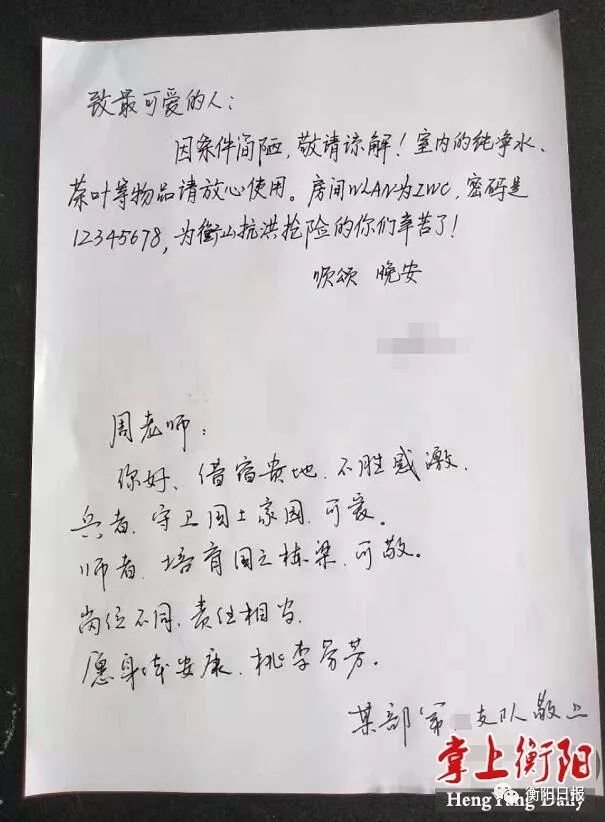 致最可爱的人：
因条件简陋，敬请谅解！室内的纯净水、
茶叶等物品请放心使用。房间WLAN为ZWC，密码是
12345678，为衡山抗洪抢险的你们辛苦了！
顺颂 晚安
周老师：
你好、借宿贵地、不胜感激、
兵者、守卫国土家园、可爱。
师者、培育国之栋梁、可敬。
岗位不同、责任相当、
愿身体安康、桃李芬芳、
某部第 支队敬上
掌上衡阳
衡阳日报
HengYang Daily